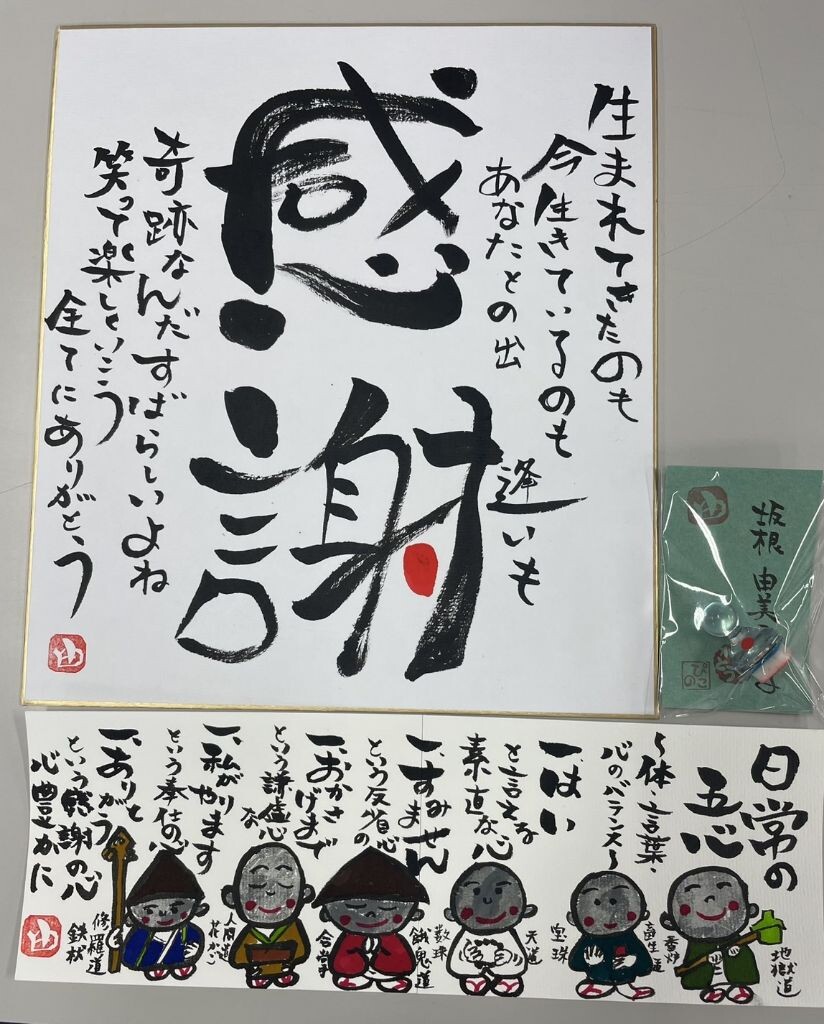 生まれてきたのも
今生きているのも
あなたとの出
逢いも
感謝
奇跡なんだすばらしいよね
笑って楽しくいこう
全てにありがとう
坂根 由美
ぴこの
日常の
五心
～体・言葉・
心のバランス～
一、はい
と言える
素直な心
一、すみません
という反省の心
一、おかげさまで
という謙虚な心
一、私がやります
という奉仕の心
一、ありがとう
という感謝の心
心豊かに
地獄道
香炉
畜生道
宝珠
天道
数珠
餓鬼道
合掌
人間道
花かご
修羅道
鉄杖